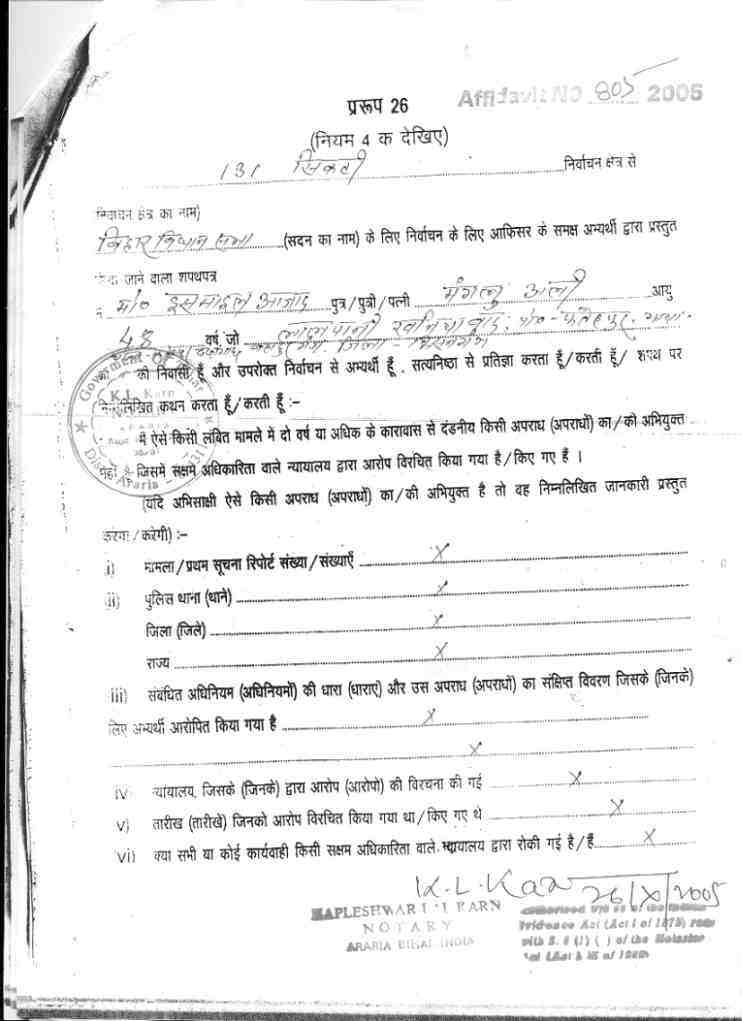 Affidavit NO 805 2005
प्ररूप 26
(नियम 4 क देखिए)
131 सिकटी निर्वाचन क्षेत्र से
निर्वाचन क्षेत्र का नाम)
बिहार विधान सभा (सदन का नाम) के लिए निर्वाचन के लिए आफिसर के समक्ष अभ्यर्थी द्वारा प्रस्तुत
किया जाने वाला शपथपत्र
मो० इसमाईल आजाद पुत्र/पुत्री/पत्नी मंगलु अली आयु
48 वर्ष, जो लालपानी पो०-फतेहपुर
जिला-
का/की निवासी हूँ और उपरोक्त निर्वाचन से अभ्यर्थी हूँ, सत्यनिष्ठा से प्रतिज्ञा करता हूँ/करती हूँ/ शपथ पर
निम्नलिखित कथन करता हूँ/करती हूँ :–
मैं ऐसे किसी लंबित मामले में दो वर्ष या अधिक के कारावास से दंडनीय किसी अपराध (अपराधों) का/की अभियुक्त
नहीं हूँ जिसमें सक्षम अधिकारिता वाले न्यायालय द्वारा आरोप विरचित किया गया है/किए गए हैं ।
(यदि अभिसाक्षी ऐसे किसी अपराध (अपराधों) का/की अभियुक्त है तो वह निम्नलिखित जानकारी प्रस्तुत
करेगा/करेगी) :–
i) मामला/प्रथम सूचना रिपोर्ट संख्या/संख्याएँ X
ii) पुलिस थाना (थाने) X
जिला (जिले) X
राज्य X
iii) संबंधित अधिनियम (अधिनियमों) की धारा (धाराएं) और उस अपराध (अपराधों) का संक्षिप्त विवरण जिसके (जिनके)
लिए अभ्यर्थी आरोपित किया गया है X
X
iv) न्यायालय, जिसके (जिनके) द्वारा आरोप (आरोपों) की विरचना की गई X
v) तारीख (तारीखें) जिनको आरोप विरचित किया गया था/किए गए थे X
vi) क्या सभी या कोई कार्यवाही किसी सक्षम अधिकारिता वाले न्यायालय द्वारा रोकी गई है/हैं X
K.L. Karn 26/X/2005
KAPLESHWAR LAL KARN
NOTARY
ARARIA BIHAR INDIA
Authorised U/S of the
Evidence Act (Act I of 1872) read
with S. 8 (1) ( ) of the Notaries
Act